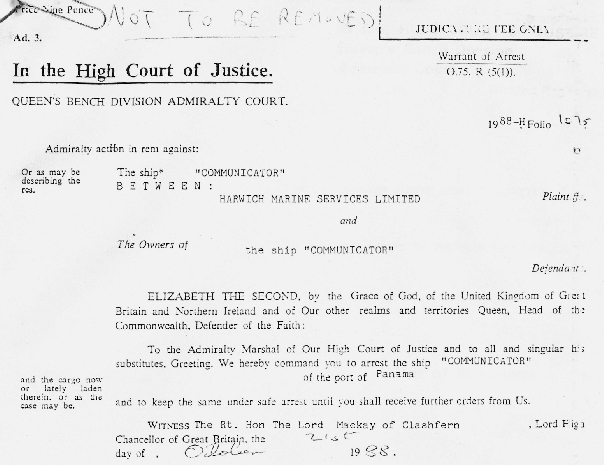 Price Nine Pence
NOT TO BE REMOVED
JUDICATURE FEE ONLY
Ad. 3.
Warrant of Arrest
O.75. R (5(1)).
In the High Court of Justice.
QUEEN'S BENCH DIVISION ADMIRALTY COURT.
1988-H Folio 1075
Admiralty action in rem against:
Or as may be
describing the
res.
The ship* "COMMUNICATOR"
B E T W E E N :
HARWICH MARINE SERVICES LIMITED
Plaintiff.
and
The Owners of the ship "COMMUNICATOR"
Defendant.
ELIZABETH THE SECOND, by the Grace of God, of the United Kingdom of Great
Britain and Northern Ireland and of Our other realms and territories Queen, Head of the
Commonwealth, Defender of the Faith:
To the Admiralty Marshal of Our High Court of Justice and to all and singular his
substitutes, Greeting. We hereby command you to arrest the ship "COMMUNICATOR"
of the port of Panama
and the cargo now
or lately laden
therein, or as the
case may be.
and to keep the same under safe arrest until you shall receive further orders from Us.
WITNESS The Rt. Hon The Lord Mackay of Clashfern , Lord High
Chancellor of Great Britain, the 21st
day of , October 1988.